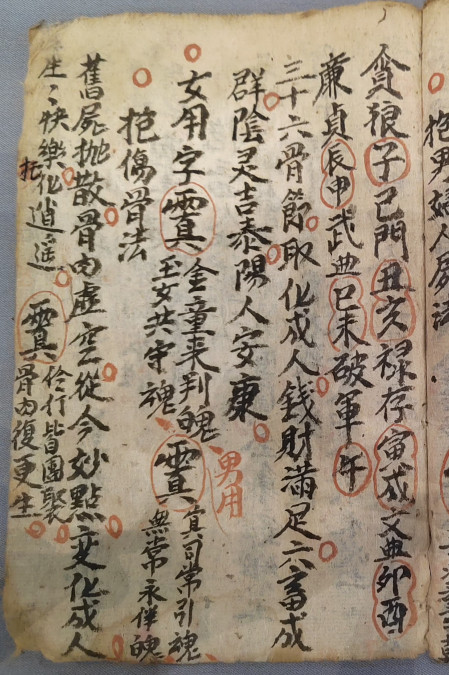 抱男婦人屍法
貪狼子巨門丑亥禄存寅戌文曲卯酉
廉貞辰申武曲巳未破軍午
三十六骨節取化成人錢財滿足六畜成
群陰灵吉泰陽人安康
女用字
金童来判魄
玉女共守魂
男用
真司常引魂
無常永伴魄
抱傷骨法
舊屍拋散骨肉虛空從今妙點变化成人
生〻快樂化逍遥
伶仃皆團聚
骨肉復更生